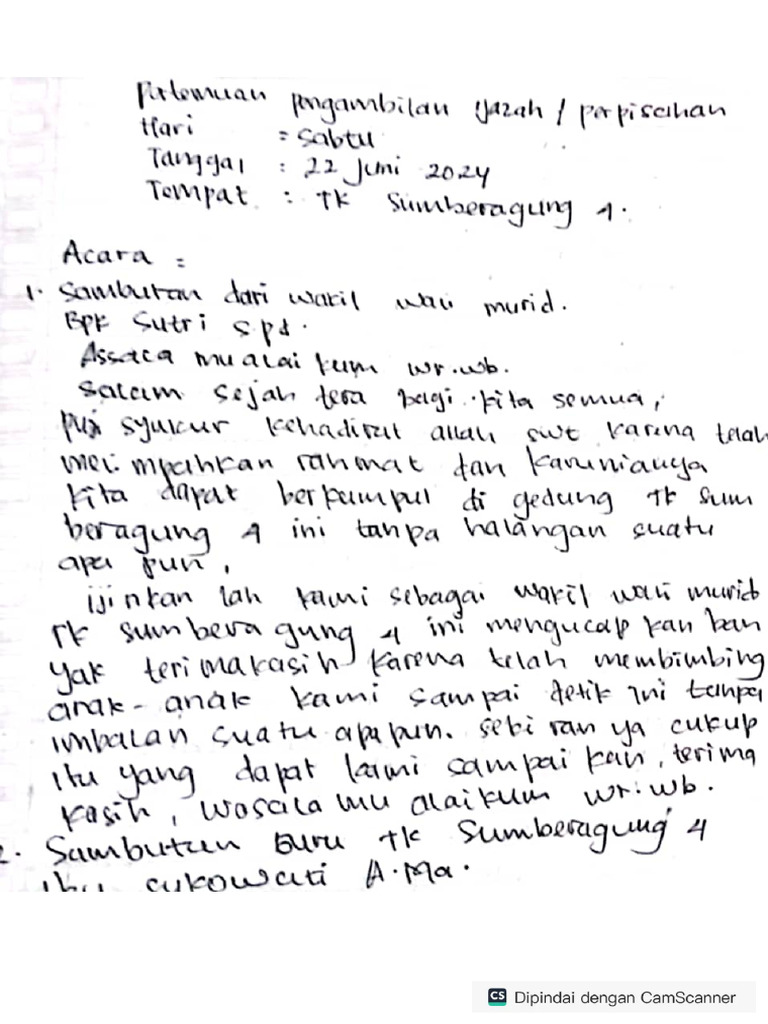 Pertemuan pengambilan ijazah / perpisahan
Hari : Sabtu
Tanggal : 22 Juni 2024
Tempat : TK Sumberagung 4.
Acara :
1. Sambutan dari wakil wali murid.
Bpk Sutri S.pd.
Assalamualaikum wr.wb.
salam sejah tera bagi kita semua,
puji syukur kehadirat allah swt karena telah
melimpahkan rahmat dan karunianya
kita dapat berkumpul di gedung TK Sum
beragung 4 ini tanpa halangan suatu
apa pun,
ijinkan lah kami sebagai wakil wali murid
TK sumberagung 4 ini mengucap kan ban
yak terimakasih karena telah membimbing
anak-anak kami sampai detik ini tanpa
imbalan suatu apapun. sebiran ya cukup
itu yang dapat kami sampai kan, terima
kasih, wassala mu alaikum wr.wb.
2. Sambutan Guru TK Sumberagung 4
ibu cukowati A.Ma.
CS Dipindai dengan CamScanner